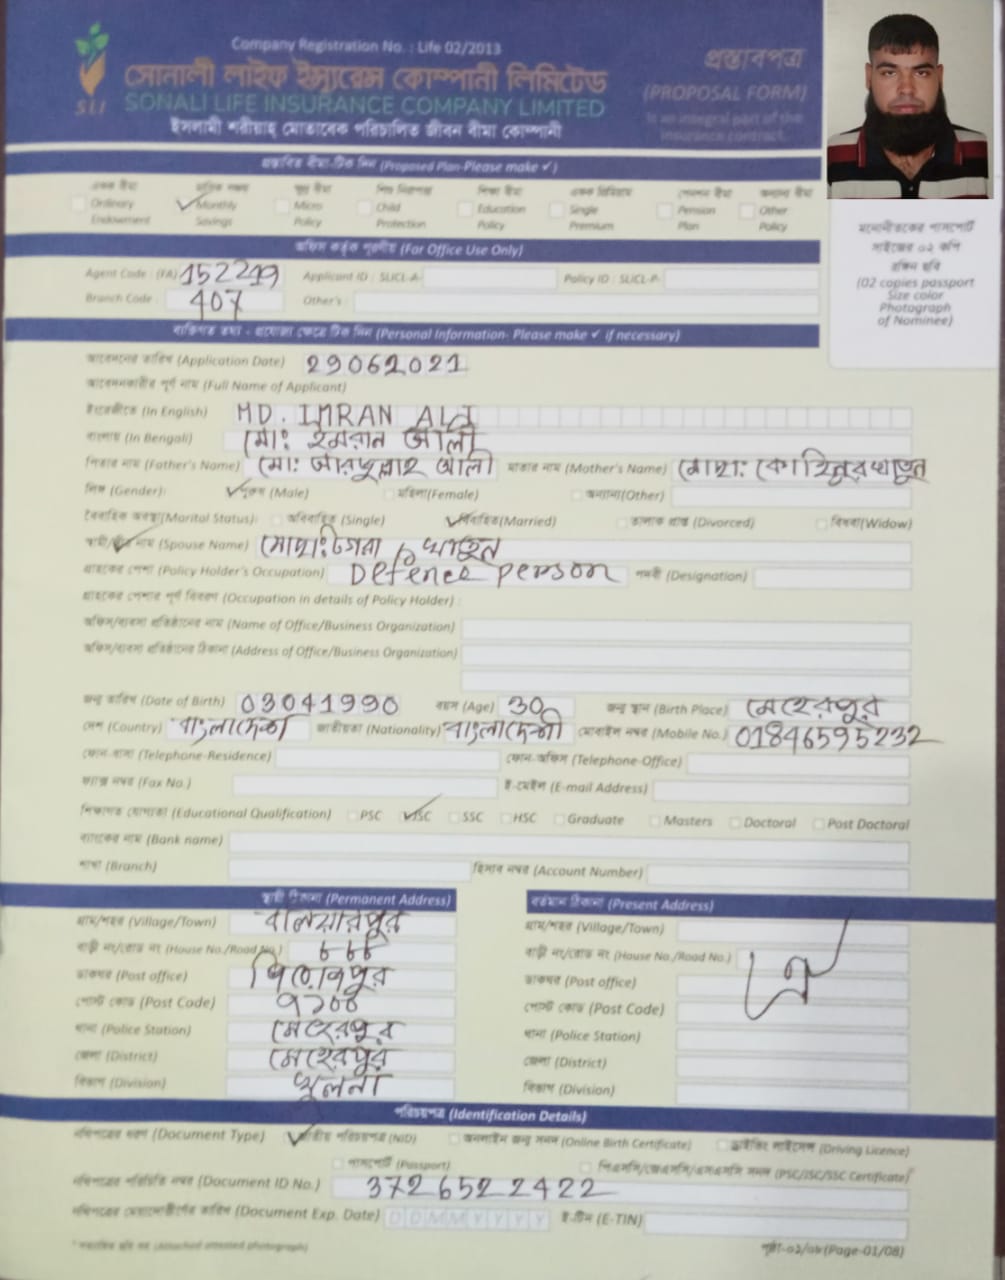 Company Registration No. : Life 02/2013
প্রস্তাবপত্র
সোনালী লাইফ ইন্স্যুরেন্স কোম্পানী লিমিটেড
(PROPOSAL FORM)
SLI
SONALI LIFE INSURANCE COMPANY LIMITED
is an integral part of the insurance contract.
ইসলামী শরীয়াহ্ মোতাবেক পরিচালিত জীবন বীমা কোম্পানী
প্রস্তাবিত বীমা-টিক দিন (Proposed Plan-Please make ✓)
Ordinary Endowment
✓ Monthly Savings
Micro Policy
Child Protection
Education Policy
Single Premium
Pension Plan
Other Policy
মনোনীতকের পাসপোর্ট
সাইজের ০২ কপি
রঙ্গিন ছবি
(02 copies passport
Size color
Photograph
of Nominee)
অফিস কর্তৃক পূরণীয় (For Office Use Only)
Agent Code : (FA) 152219 Applicant ID : SLICL-A- Policy ID : SLICL-P-
Branch Code : 407 Other's :
ব্যক্তিগত তথ্য - প্রযোজ্য ক্ষেত্রে টিক দিন (Personal Information- Please make ✓ if necessary)
আবেদনের তারিখ (Application Date) 29062021
আবেদনকারীর পূর্ণ নাম (Full Name of Applicant)
ইংরেজীতে (In English) MD. IMRAN ALI
বাংলায় (In Bengali) মো: ইমরান আলী
পিতার নাম (Father's Name) মো: আব্দুল্লাহ আলী মাতার নাম (Mother's Name) মোছা: কোহিনুর খাতুন
লিঙ্গ (Gender): ✓ পুরুষ (Male) মহিলা(Female) অন্যান্য(Other)
বৈবাহিক অবস্থা(Marital Status): অবিবাহিত (Single) ✓ বিবাহিত(Married) তালাক প্রাপ্ত (Divorced) বিধবা(Widow)
স্বামী/স্ত্রীর নাম (Spouse Name) মোছা: খাতুন
গ্রাহকের পেশা (Policy Holder's Occupation) Defence person পদবী (Designation)
গ্রাহকের পেশার পূর্ণ বিবরণ (Occupation in details of Policy Holder) :
অফিস/ব্যবসা প্রতিষ্ঠানের নাম (Name of Office/Business Organization)
অফিস/ব্যবসা প্রতিষ্ঠানের ঠিকানা (Address of Office/Business Organization)
জন্ম তারিখ (Date of Birth) 03041990 বয়স (Age) 30 জন্ম স্থান (Birth Place) মেহেরপুর
দেশ (Country) বাংলাদেশ জাতীয়তা (Nationality) বাংলাদেশী মোবাইল নম্বর (Mobile No.) 01846595232
ফোন-বাসা (Telephone-Residence) ফোন-অফিস (Telephone-Office)
ফ্যাক্স নম্বর (Fax No.) ই-মেইল (E-mail Address)
শিক্ষাগত যোগ্যতা (Educational Qualification) PSC ✓ JSC SSC HSC Graduate Masters Doctoral Post Doctoral
ব্যাংকের নাম (Bank name)
শাখা (Branch) হিসাব নম্বর (Account Number)
স্থায়ী ঠিকানা (Permanent Address) বর্তমান ঠিকানা (Present Address)
গ্রাম/শহর (Village/Town) বলিয়ারপুর গ্রাম/শহর (Village/Town)
বাড়ী নং/রোড নং (House No./Road No.) বাড়ী নং/রোড নং (House No./Road No.)
ডাকঘর (Post office) পিরোজপুর ডাকঘর (Post office)
পোস্ট কোড (Post Code) ৭১০০ পোস্ট কোড (Post Code)
থানা (Police Station) মেহেরপুর থানা (Police Station)
জেলা (District) মেহেরপুর জেলা (District)
বিভাগ (Division) খুলনা বিভাগ (Division)
পরিচয়পত্র (Identification Details)
নথিপত্রের ধরণ (Document Type) ✓ জাতীয় পরিচয়পত্র (NID) অনলাইন জন্ম সনদ (Online Birth Certificate) ড্রাইভিং লাইসেন্স (Driving Licence)
পাসপোর্ট (Passport) পিএসসি/জেএসসি/এসএসসি সনদ (PSC/JSC/SSC Certificate)
নথিপত্রের পরিচিতি নম্বর (Document ID No.) 3726522422
নথিপত্রের মেয়াদোত্তীর্ণের তারিখ (Document Exp. Date) DDMMYYYY ই-টিন (E-TIN)
* সত্যায়িত ছবি সহ (Attached attested photograph) পৃষ্ঠা-০১/০৮(Page-01/08)